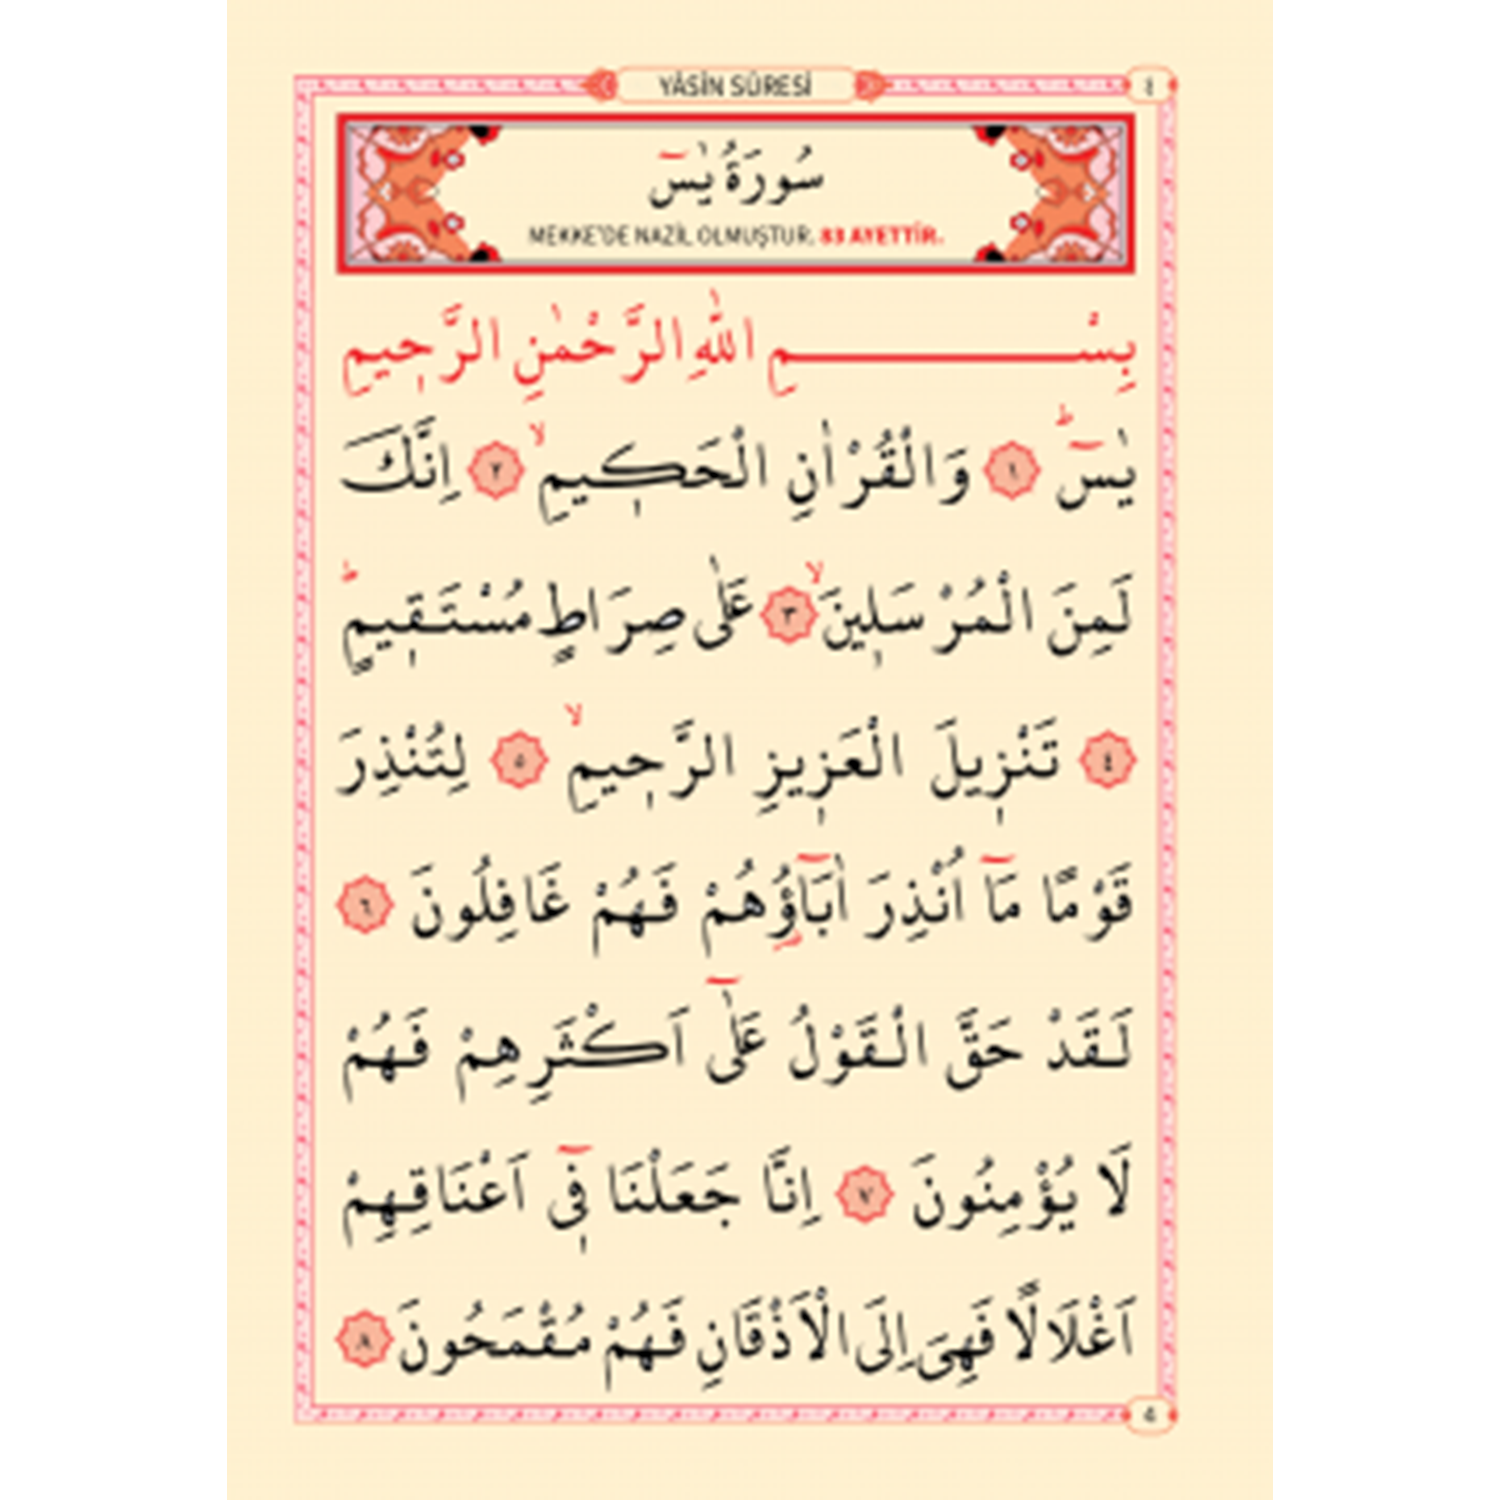 YÂSÎN SÛRESİ ٤
سُورَةُ يٰسٓ
MEKKE'DE NAZİL OLMUŞTUR. 83 AYETTİR.
بِسْــــــــــــــــمِ اللّٰهِ الرَّحْمٰنِ الرَّحٖيمِ
يٰسٓ ؕ ﴿١﴾ وَالْقُرْاٰنِ الْحَكٖيمِ ۙ ﴿٢﴾ اِنَّكَ
لَمِنَ الْمُرْسَلٖينَ ۙ ﴿٣﴾ عَلٰى صِرَاطٍ مُسْتَقٖيمٍ ؕ
﴿٤﴾ تَنْزٖيلَ الْعَزٖيزِ الرَّحٖيمِ ۙ ﴿٥﴾ لِتُنْذِرَ
قَوْمًا مَٓا اُنْذِرَ اٰبَٓاؤُ۬هُمْ فَهُمْ غَافِلُونَ ﴿٦﴾
لَقَدْ حَقَّ الْقَوْلُ عَلٰٓى اَكْثَرِهِمْ فَهُمْ
لَا يُؤْمِنُونَ ﴿٧﴾ اِنَّا جَعَلْنَا فٖٓى اَعْنَاقِهِمْ
اَغْلَالًا فَهِىَ اِلَى الْاَذْقَانِ فَهُمْ مُقْمَحُونَ ﴿٨﴾
4